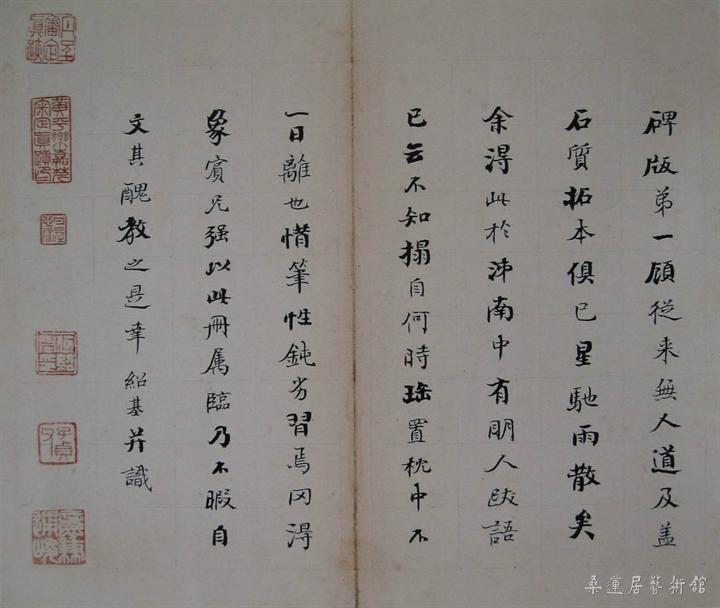 碑版第一顧從来無人道及盖
石質拓本俱已星馳雨散矣
余得此於沛南中有明人跋語
已云不知搨自何時珎置枕中不
一日離也惜筆性鈍劣習焉罔淂
象賓兄强以此冊属臨乃不暇自
文其醜教之是幸紹基并識
子貞
桑蓮居藝術館